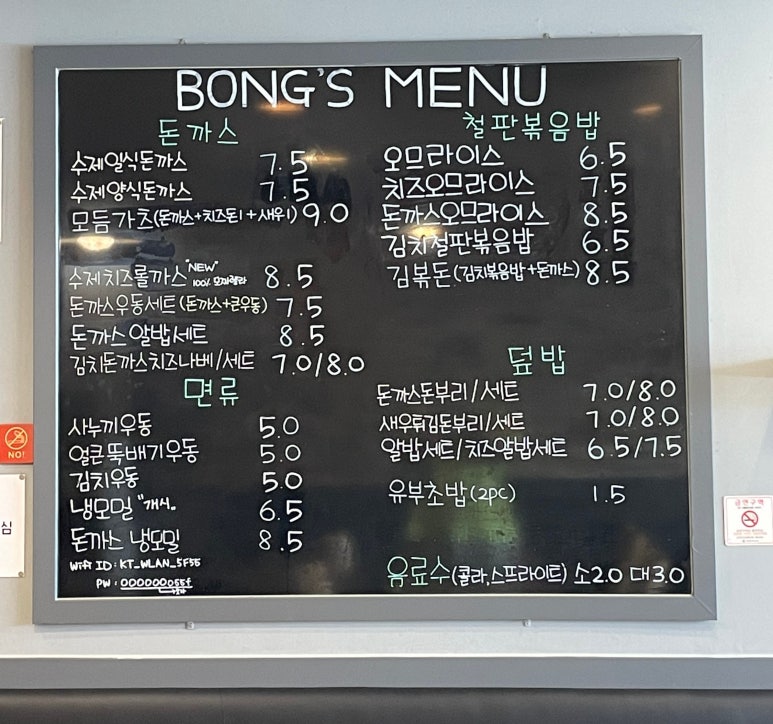 BONG'S MENU
돈까스
수제일식돈까스 7.5
수제양식돈까스 7.5
모듬가츠(돈까스+치즈돈1+새우1) 9.0
수제치즈롤까스 "NEW" 100% 모짜렐라 8.5
돈까스우동세트(돈까스+큰우동) 7.5
돈까스 알밥세트 8.5
김치돈까스치즈나베/세트 7.0/8.0
면류
사누끼우동 5.0
얼큰뚝배기우동 5.0
김치우동 5.0
냉모밀 "개시. 6.5
돈까스 냉모밀 8.5
Wifi ID: KT_WLAN_5F55
PW: 000000055f
철판볶음밥
오므라이스 6.5
치즈오므라이스 7.5
돈까스오므라이스 8.5
김치철판볶음밥 6.5
김볶돈(김치볶음밥+돈까스) 8.5
덮밥
돈까스돈부리/세트 7.0/8.0
새우튀김돈부리/세트 7.0/8.0
알밥세트/치즈알밥세트 6.5/7.5
유부초밥(2pc) 1.5
음료수(콜라,스프라이트) 소2.0 대3.0
NO!
심
금연구역